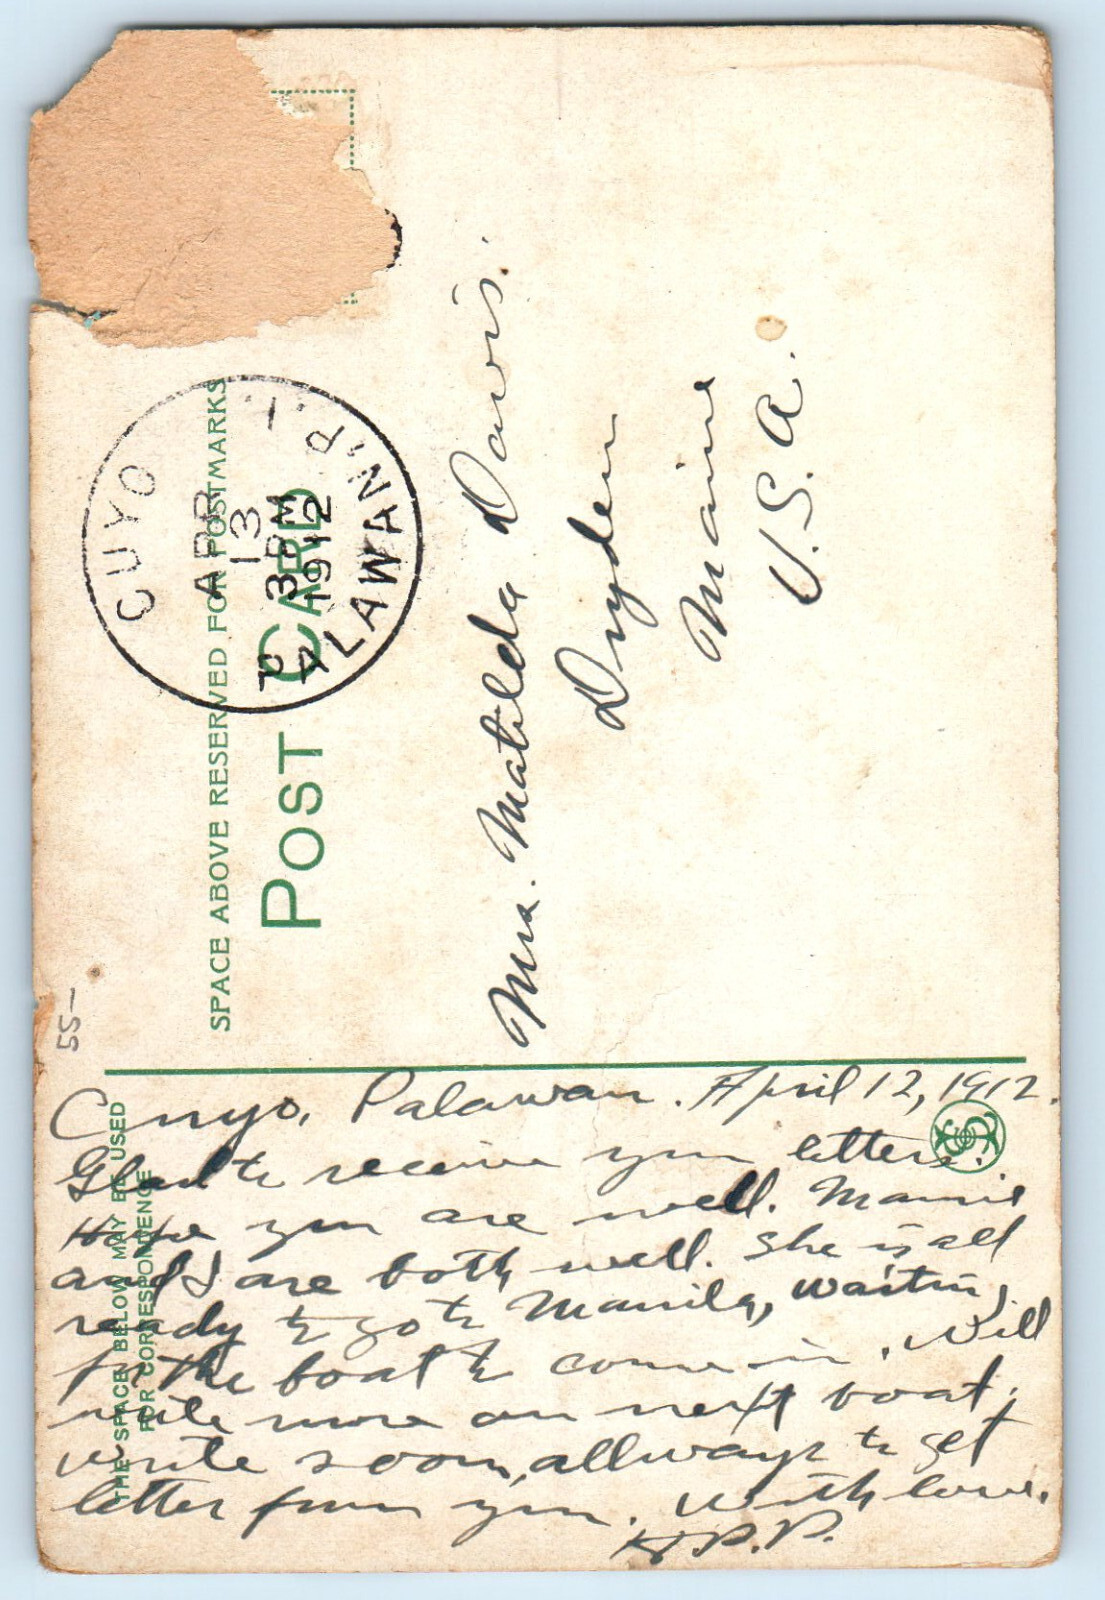 SPACE ABOVE RESERVED FOR POSTMARKS
POST CARD
CUYO
APR
13
3 PM
1912
PALAWAN, P.I.
Mrs. Matilda Davis.
Dryden
Maine
U.S.A.
55-
THE SPACE BELOW MAY BE USED
FOR CORRESPONDENCE
Cuyo, Palawan. April 12, 1912.
Glad to receive your letters.
Hope you are well. Mamie
and I are both well. She is all
ready to go to Manila, waiting
for the boat to come in. Will
write more on next boat.
write soon, allways to get
letter from you. With love.
H.P.P.